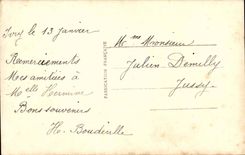 Ivry le 13 janvier
Remerciements
Mes amitiées à
Mlle Hermine
Bons souvenirs
H. Boudeville
FABRICATION FRANÇAISE
Mme Monsieur
Julien Demilly
Jussy